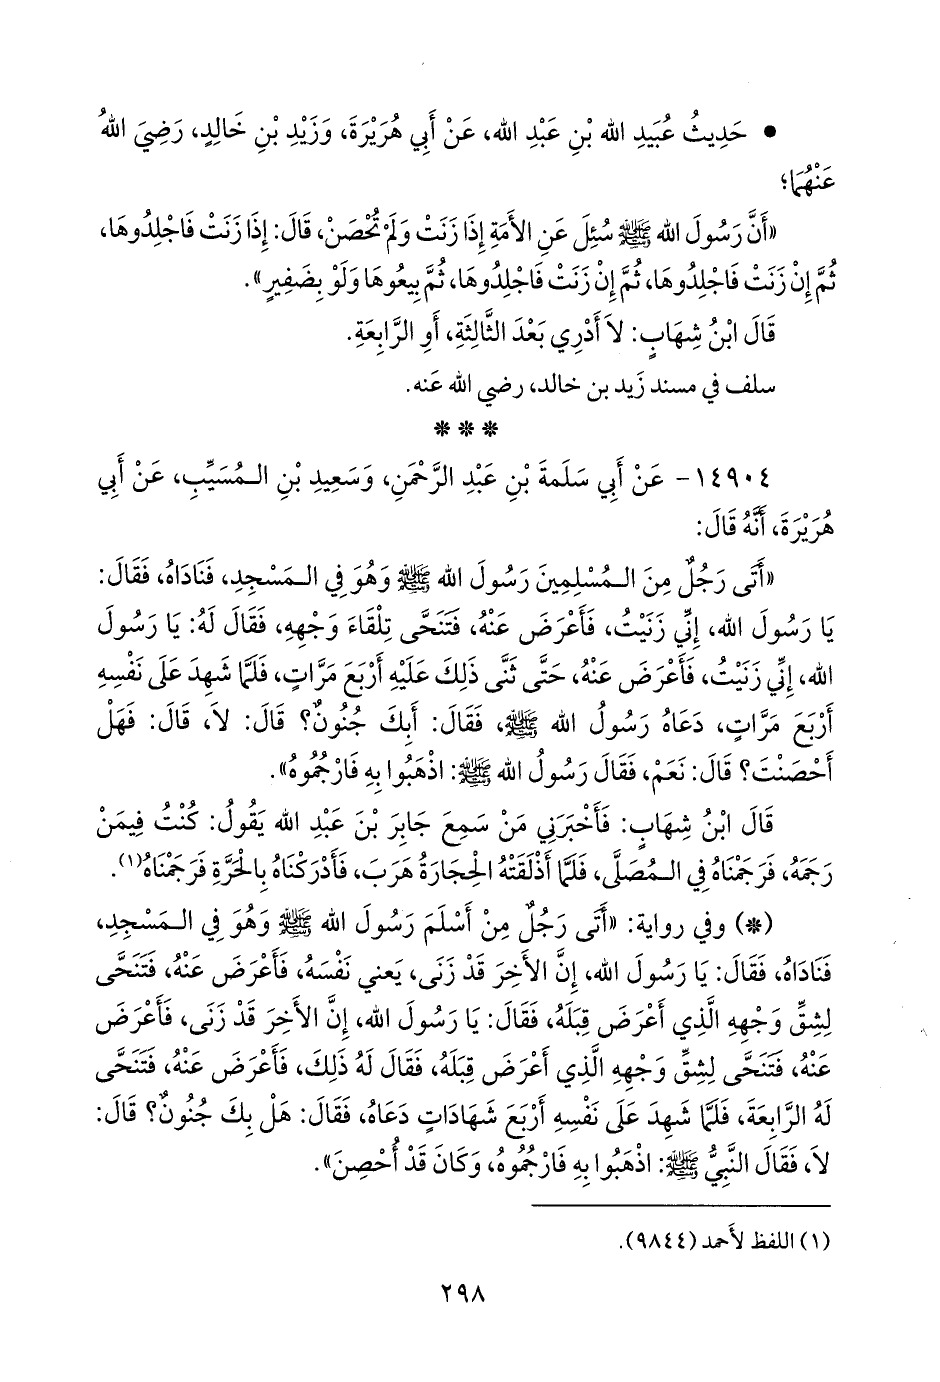 • حَدِيثُ عُبَيدِ الله بْنِ عَبْدِ الله، عَنْ أَبِي هُرَيْرَةَ، وَزَيْدِ بْنِ خَالِدٍ، رَضِيَ اللهُ
عَنْهُمَا؛
«أَنَّ رَسُولَ الله ﷺ سُئِلَ عَنِ الأَمَةِ إِذَا زَنَتْ وَلَمْ تُحْصَنْ، قَالَ: إِذَا زَنَتْ فَاجْلِدُوهَا،
ثُمَّ إِنْ زَنَتْ فَاجْلِدُوهَا، ثُمَّ إِنْ زَنَتْ فَاجْلِدُوهَا، ثُمَّ بِيعُوهَا وَلَوْ بِضَفِيرٍ».
قَالَ ابْنُ شِهَابٍ: لاَ أَدْرِي بَعْدَ الثَّالِثَةِ، أَوِ الرَّابِعَةِ.
سلف في مسند زَيد بن خالد، رضي الله عَنه.
* * *
١٤٩٠٤ - عَنْ أَبِي سَلَمَةَ بْنِ عَبْدِ الرَّحْمَنِ، وَسَعِيدِ بْنِ الْـمُسَيِّبِ، عَنْ أَبِي
هُرَيْرَةَ، أَنَّهُ قَالَ:
«أَتَى رَجُلٌ مِنَ الْـمُسْلِمِينَ رَسُولَ الله ﷺ وَهُوَ فِي الْـمَسْجِدِ، فَنَادَاهُ، فَقَالَ:
يَا رَسُولَ الله، إِنِّي زَنَيْتُ، فَأَعْرَضَ عَنْهُ، فَتَنَحَّى تِلْقَاءَ وَجْهِهِ، فَقَالَ لَهُ: يَا رَسُولَ
الله، إِنِّي زَنَيْتُ، فَأَعْرَضَ عَنْهُ، حَتَّى ثَنَّى ذَلِكَ عَلَيْهِ أَرْبَعَ مَرَّاتٍ، فَلَمَّا شَهِدَ عَلَى نَفْسِهِ
أَرْبَعَ مَرَّاتٍ، دَعَاهُ رَسُولُ الله ﷺ، فَقَالَ: أَبِكَ جُنُونٌ؟ قَالَ: لاَ، قَالَ: فَهَلْ
أَحْصَنْتَ؟ قَالَ: نَعَمْ، فَقَالَ رَسُولُ الله ﷺ: اذْهَبُوا بِهِ فَارْجُمُوهُ».
قَالَ ابْنُ شِهَابٍ: فَأَخْبَرَنِي مَنْ سَمِعَ جَابِرَ بْنَ عَبْدِ الله يَقُولُ: كُنْتُ فِيمَنْ
رَجَمَهُ، فَرَجَمْنَاهُ فِي الْـمُصَلَّى، فَلَمَّا أَذْلَقَتْهُ الْحِجَارَةُ هَرَبَ، فَأَدْرَكْنَاهُ بِالْحَرَّةِ فَرَجَمْنَاهُ(١).
(*) وفي رواية: «أَتَى رَجُلٌ مِنْ أَسْلَمَ رَسُولَ الله ﷺ وَهُوَ فِي الْـمَسْجِدِ،
فَنَادَاهُ، فَقَالَ: يَا رَسُولَ الله، إِنَّ الأَخِرَ قَدْ زَنَى، يَعني نَفْسَهُ، فَأَعْرَضَ عَنْهُ، فَتَنَحَّى
لِشِقِّ وَجْهِهِ الَّذِي أَعْرَضَ قِبَلَهُ، فَقَالَ: يَا رَسُولَ الله، إِنَّ الأَخِرَ قَدْ زَنَى، فَأَعْرَضَ
عَنْهُ، فَتَنَحَّى لِشِقِّ وَجْهِهِ الَّذِي أَعْرَضَ قِبَلَهُ، فَقَالَ لَهُ ذَلِكَ، فَأَعْرَضَ عَنْهُ، فَتَنَحَّى
لَهُ الرَّابِعَةَ، فَلَمَّا شَهِدَ عَلَى نَفْسِهِ أَرْبَعَ شَهَادَاتٍ دَعَاهُ، فَقَالَ: هَلْ بِكَ جُنُونٌ؟ قَالَ:
لاَ، فَقَالَ النَّبِيُّ ﷺ: اذْهَبُوا بِهِ فَارْجُمُوهُ، وَكَانَ قَدْ أُحْصِنَ».
(١) اللفظ لأَحمد (٩٨٤٤).
٢٩٨